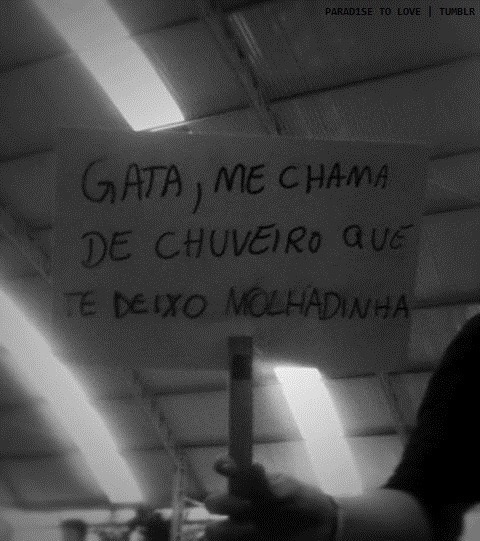 PARADISE TO LOVE | TUMBLR
GATA, ME CHAMA
DE CHUVEIRO QUE
TE DEIXO MOLHADINHA